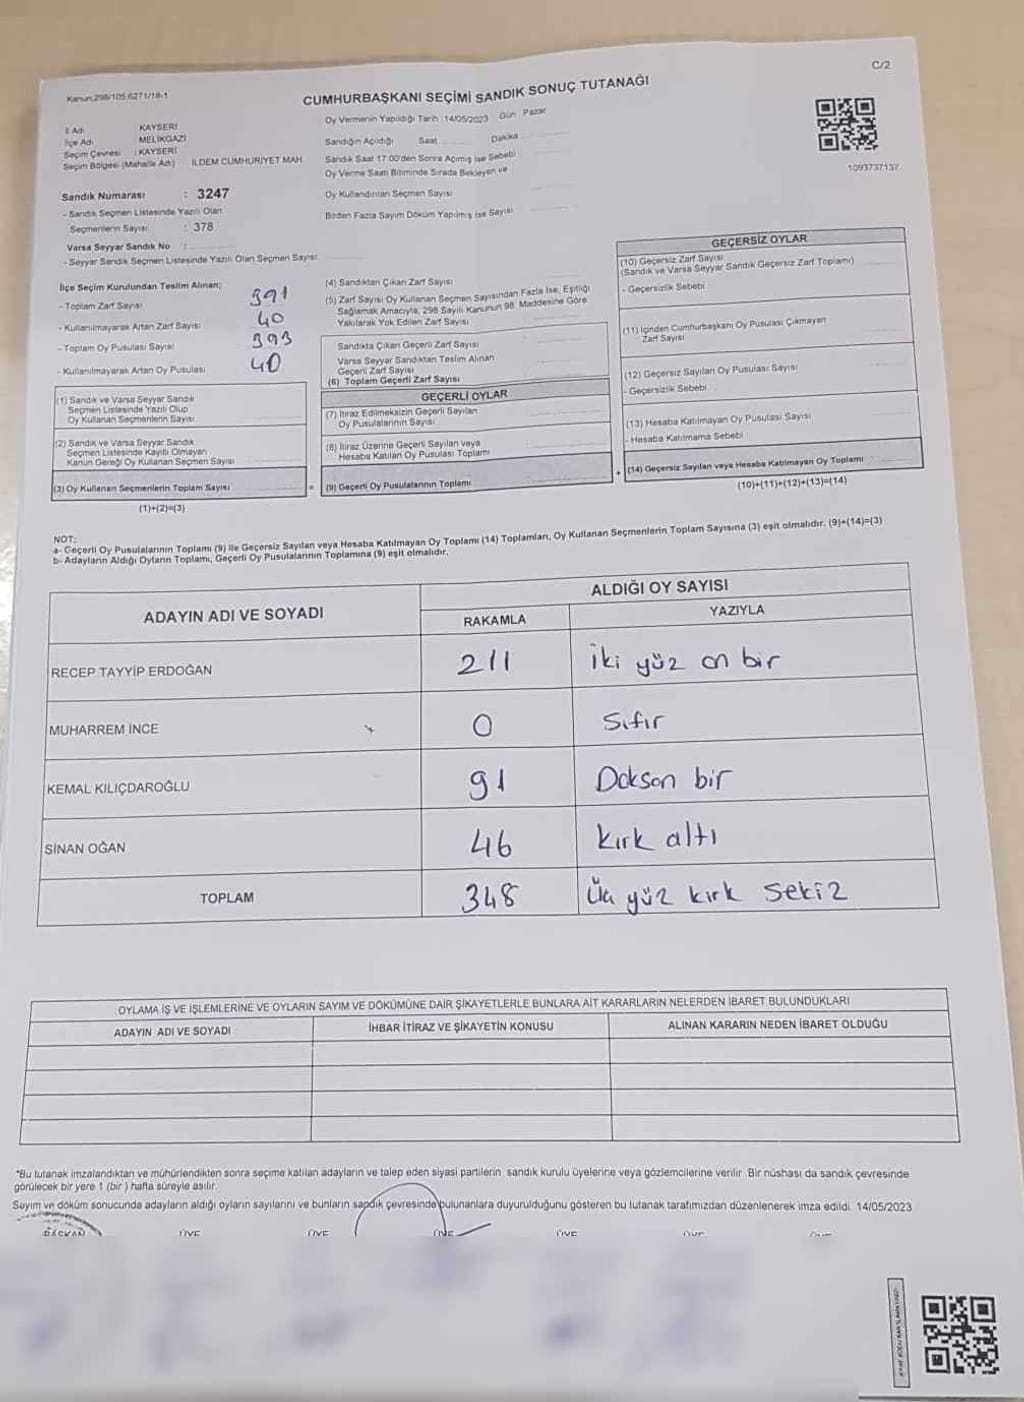 C/2
Kanun:298/105,6271/18-1
CUMHURBAŞKANI SEÇİMİ SANDIK SONUÇ TUTANAĞI
İl Adı KAYSERİ
İlçe Adı MELİKGAZİ
Seçim Çevresi : KAYSERİ
Seçim Bölgesi (Mahalle Adı) İLDEM CUMHURİYET MAH
Sandık Numarası : 3247
- Sandık Seçmen Listesinde Yazılı Olan
Seçmenlerin Sayısı : 378
Varsa Seyyar Sandık No :
- Seyyar Sandık Seçmen Listesinde Yazılı Olan Seçmen Sayısı
Oy Vermenin Yapıldığı Tarih 14/05/2023 Gün Pazar
Sandığın Açıldığı Saat Dakika
Sandık Saat 17:00'den Sonra Açımış İse Sebebi
Oy Verme Saati Bitiminde Sırada Bekleyen ve
Oy Kullandırılan Seçmen Sayısı
Birden Fazla Sayım Döküm Yapılmış İse Sayısı
1093737137
İlçe Seçim Kurulundan Teslim Alınan;
- Toplam Zarf Sayısı 391
- Kullanılmayarak Artan Zarf Sayısı 40
- Toplam Oy Pusulası Sayısı 393
- Kullanılmayarak Artan Oy Pusulası 40
(1) Sandık ve Varsa Seyyar Sandık
Seçmen Listesinde Yazılı Olup
Oy Kullanan Seçmenlerin Sayısı
(2) Sandık ve Varsa Seyyar Sandık
Seçmen Listesinde Kayıtlı Olmayan
Kanun Gereği Oy Kullanan Seçmen Sayısı
(3) Oy Kullanan Seçmenlerin Toplam Sayısı
(1)+(2)=(3)
(4) Sandıktan Çıkan Zarf Sayısı
(5) Zarf Sayısı Oy Kullanan Seçmen Sayısından Fazla İse, Eşitliği
Sağlamak Amacıyla, 298 Sayılı Kanunun 98. Maddesine Göre
Yakılarak Yok Edilen Zarf Sayısı
Sandıkta Çıkan Geçerli Zarf Sayısı
Varsa Seyyar Sandıktan Teslim Alınan
Geçerli Zarf Sayısı
(6) Toplam Geçerli Zarf Sayısı
GEÇERLİ OYLAR
(7) İtiraz Edilmeksizin Geçerli Sayılan
Oy Pusulalarının Sayısı
(8) İtiraz Üzerine Geçerli Sayılan veya
Hesaba Katılan Oy Pusulası Toplamı
= (9) Geçerli Oy Pusulalarının Toplamı
GEÇERSİZ OYLAR
(10) Geçersiz Zarf Sayısı
(Sandık ve Varsa Seyyar Sandık Geçersiz Zarf Toplamı)
- Geçersizlik Sebebi
(11) İçinden Cumhurbaşkanı Oy Pusulası Çıkmayan
Zarf Sayısı
(12) Geçersiz Sayılan Oy Pusulası Sayısı
- Geçersizlik Sebebi
(13) Hesaba Katılmayan Oy Pusulası Sayısı
- Hesaba Katılmama Sebebi
+ (14) Geçersiz Sayılan veya Hesaba Katılmayan Oy Toplamı
(10)+(11)+(12)+(13)=(14)
NOT:
a- Geçerli Oy Pusulalarının Toplamı (9) ile Geçersiz Sayılan veya Hesaba Katılmayan Oy Toplamı (14) Toplamları, Oy Kullanan Seçmenlerin Toplam Sayısına (3) eşit olmalıdır. (9)+(14)=(3)
b- Adayların Aldığı Oyların Toplamı, Geçerli Oy Pusulalarının Toplamına (9) eşit olmalıdır.
ADAYIN ADI VE SOYADI ALDIĞI OY SAYISI
RAKAMLA YAZIYLA
RECEP TAYYİP ERDOĞAN 211 İki yüz on bir
MUHARREM İNCE 0 Sıfır
KEMAL KILIÇDAROĞLU 91 Doksan bir
SİNAN OĞAN 46 Kırk altı
TOPLAM 348 Üç yüz kırk sekiz
OYLAMA İŞ VE İŞLEMLERİNE VE OYLARIN SAYIM VE DÖKÜMÜNE DAİR ŞİKAYETLERLE BUNLARA AİT KARARLARIN NELERDEN İBARET BULUNDUKLARI
ADAYIN ADI VE SOYADI İHBAR İTİRAZ VE ŞİKAYETİN KONUSU ALINAN KARARIN NEDEN İBARET OLDUĞU
*Bu tutanak imzalandıktan ve mühürlendikten sonra seçime katılan adayların ve talep eden siyasi partilerin sandık kurulu üyelerine veya gözlemcilerine verilir. Bir nüshası da sandık çevresinde
görülecek bir yere 1 (bir ) hafta süreyle asılır.
Sayım ve döküm sonucunda adayların aldığı oyların sayılarını ve bunların sandık çevresinde bulunanlara duyurulduğunu gösteren bu tutanak tarafımızdan düzenlenerek imza edildi. 14/05/2023
BAŞKAN ÜYE ÜYE ÜYE ÜYE ÜYE ÜYE